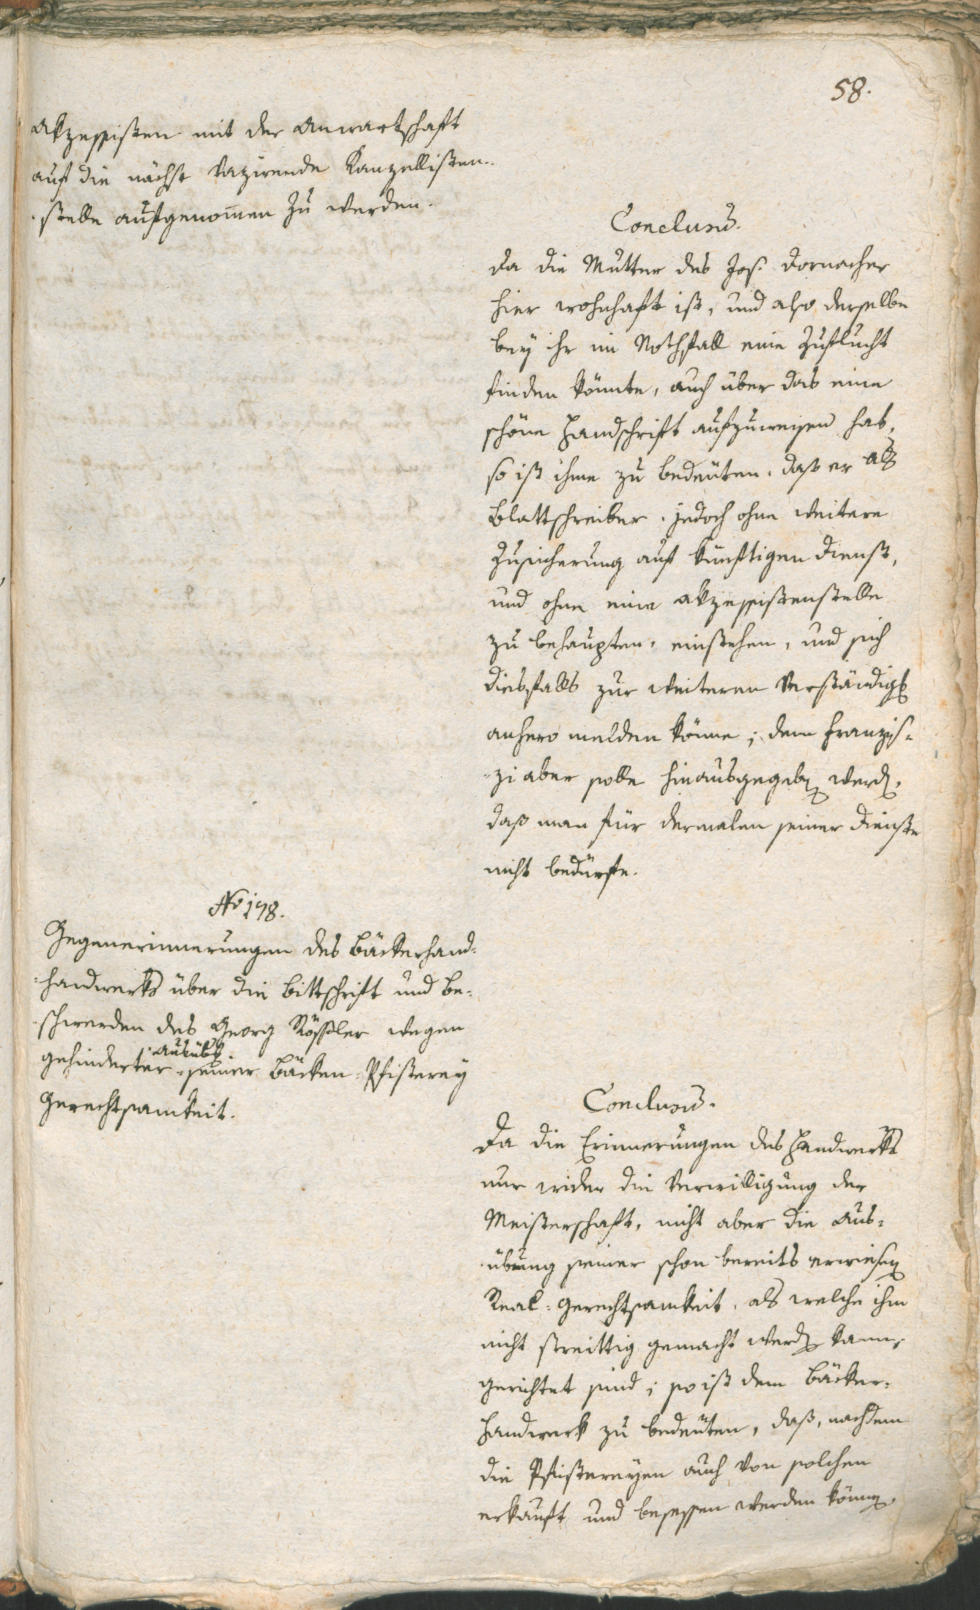 58.
Akzessisten mit der Anwartschaft
auf die nächst vazirende Kanzellisten-
stelle aufgenommen zu werden.
Conclusum.
Da die Mutter des Jos. Dornacher
hier wohnhaft ist, und also derselbe
bey ihr im Nothfall eine Zuflucht
finden könnte, auch über das eine
schöne Handschrift aufzuweisen hab,
so ist ihme zu bedeüten, daß er als
Blattschreiber, jedoch ohne weitere
Zusicherung auf künftigen Dienst,
und ohne eine Akzessistenstelle
zu behaupten, einstehen, und sich
diesfalls zur weiteren Verständigung
anhero melden könne; dem Franzis-
zi aber solle hinausgegeben werden,
daß man für dermalen seiner Dienste
nicht bedürfte.
No 178.
Gegenerinnerungen des Bäckerhand-
handwerks über die Bittschrift und Be-
schwerden des Georg Rössler wegen
gehinderter Ausübung seiner Bäcken-Pfisterey
Gerechtsamkeit.
Conclusum.
Da die Erinnerungen des Handwerks
nur wider die Verwilligung der
Meisterschaft, nicht aber die Aus-
übung seiner schon bereits erwiesenen
Real-Gerechtsamkeit, als welche ihm
nicht streittig gemacht werden kann,
gerichtet sind; so ist dem Bäcker-
Handwerk zu bedeuten, daß, nachdem
die Pfistereyen auch von solchen
erkauft und besessen werden können,